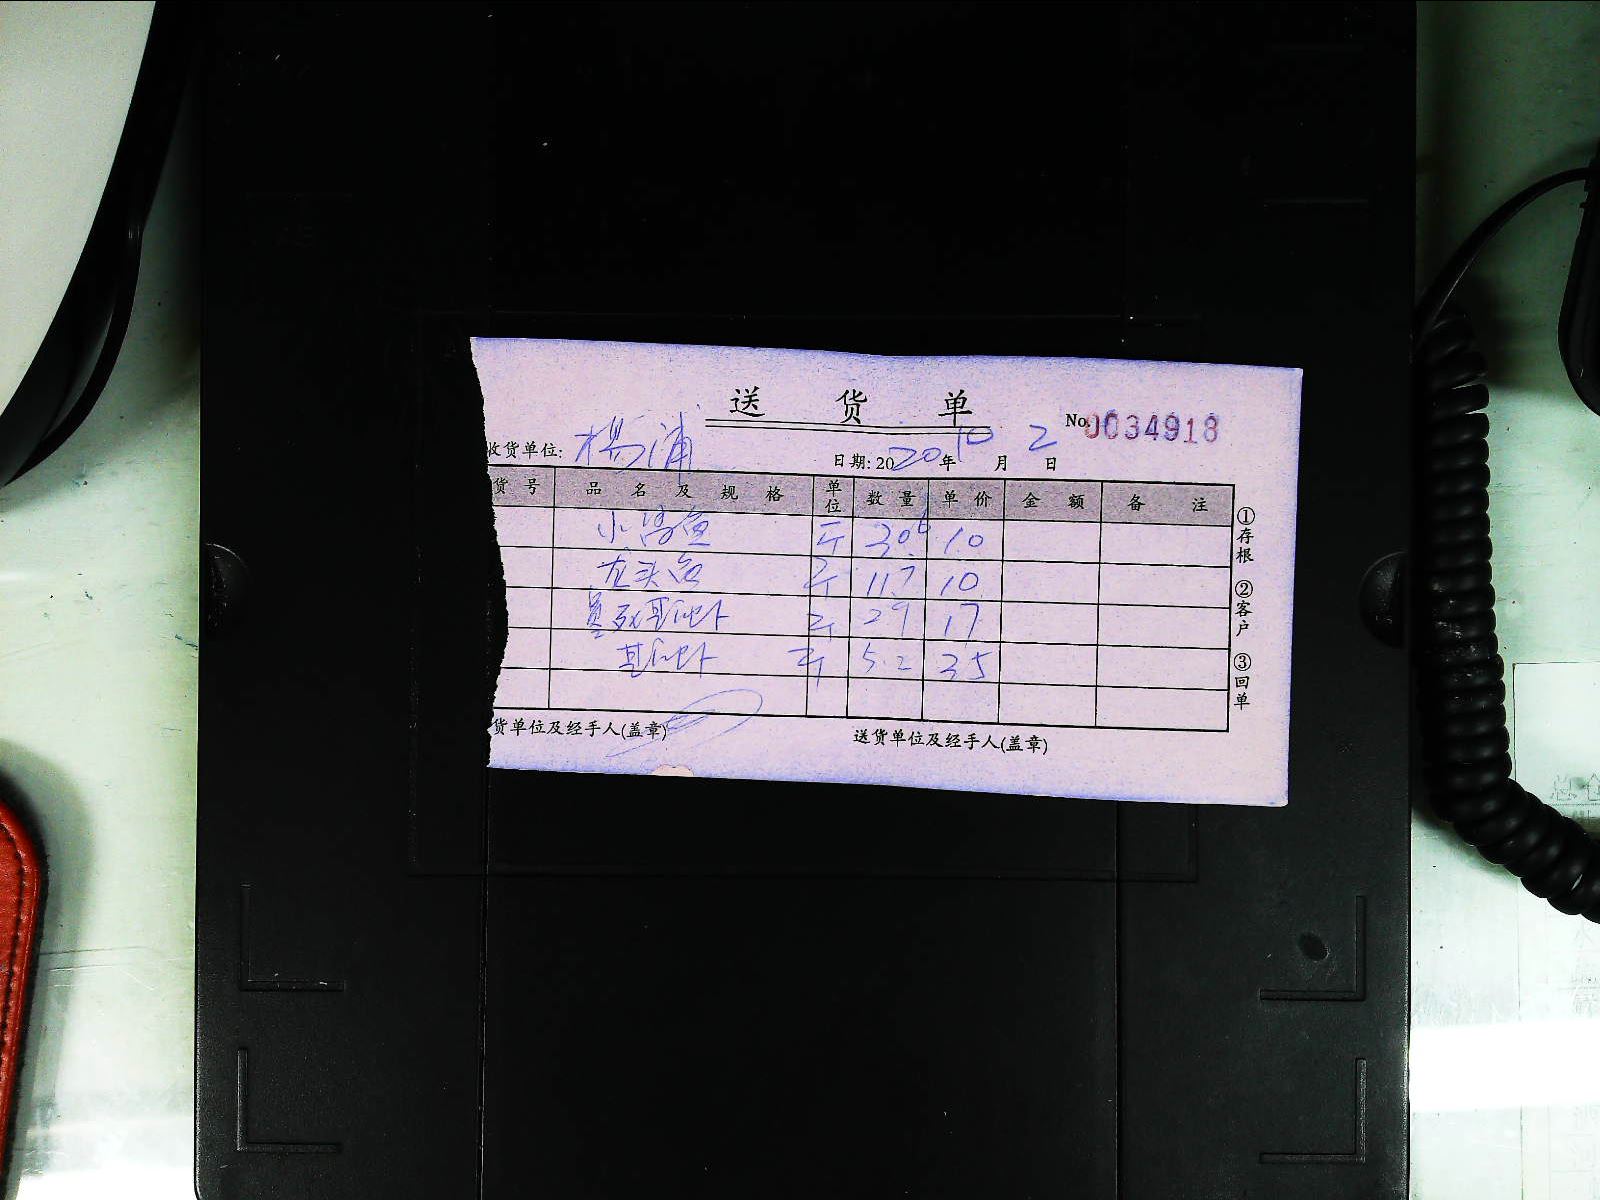 送货单
No.0034918
收货单位: 杨浦
日期: 2020年10月2日
货号 品名及规格 单位 数量 单价 金额 备注
小 鱼 斤 30.6 10
龙头鱼 斤 11.7 10
死基围虾 斤 29 17
基围虾 斤 5.2 35
货单位及经手人(盖章) 送货单位及经手人(盖章)
①存根 ②客户 ③回单